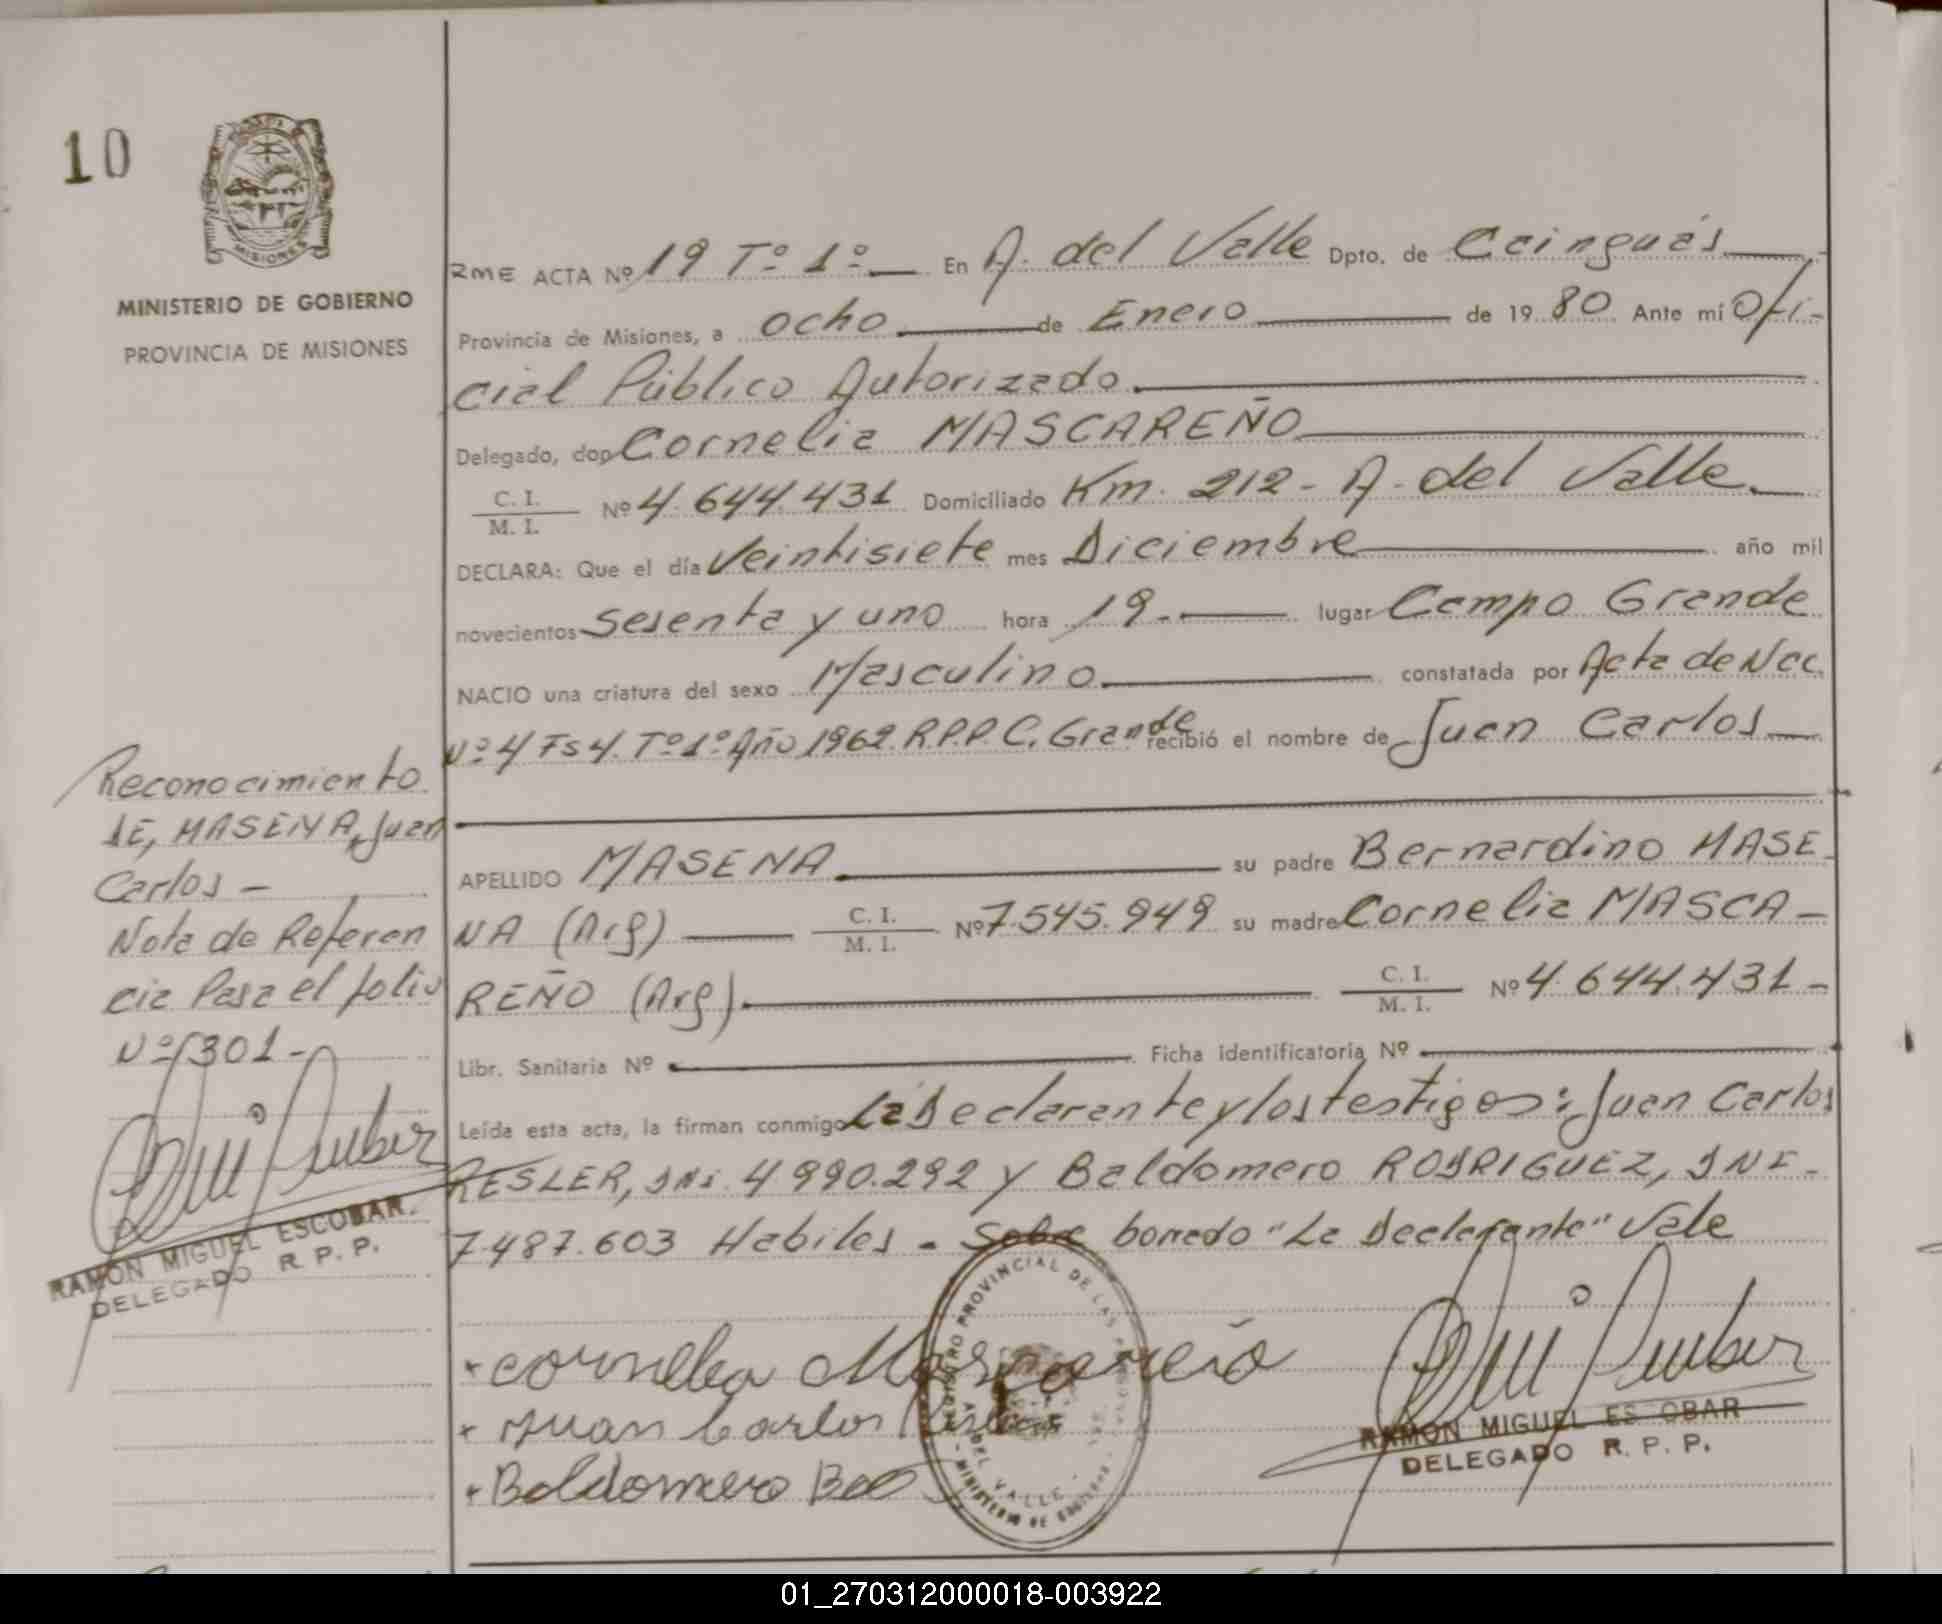 10
MISIONES
MINISTERIO DE GOBIERNO
PROVINCIA DE MISIONES
Reconocimiento
DE, MASENA, Juan
Carlos -
Nota de Referen
cia Pasa el folio
Nº 301-
RAMON MIGUEL ESCOBAR.
DELEGADO R. P. P.
RME ACTA Nº 19 Tº 1º — En A. del Valle Dpto. de Cainguás
Provincia de Misiones, a ocho de Enero de 19 80 Ante mí Ofi-
cial Público Autorizado
Delegado, don Cornelia MASCAREÑO
C. I. / M. I. Nº 4.644.431 Domiciliado Km. 212 - A. del Valle.
DECLARA: Que el día Veintisiete mes Diciembre año mil
novecientos Sesenta y uno hora 19.- lugar Campo Grande
NACIO una criatura del sexo Masculino constatada por Acta de Nac.
Nº 4 Fs 4. Tº 1º Año 1962. R.P.P. C. Grande recibió el nombre de Juan Carlos
APELLIDO MASENA su padre Bernardino MASE-
NA (Arg) C. I. / M. I. Nº 7.545.949 su madre Cornelia MASCA-
REÑO (Arg) C. I. / M. I. Nº 4.644.431-
Libr. Sanitaria Nº Ficha identificatoria Nº
Leída esta acta, la firman conmigo La Declarante y los testigos: Juan Carlos
RESLER, DNI. 4.990.292 y Baldomero RODRIGUEZ, DNI-
7.487.603 Habiles - Sobre borrado "La Declarante" Vale
Cornelia Mascareño
Juan Carlos
Baldomero
REGISTRO PROVINCIAL DE LAS
A. DEL VALLE
MINISTERIO DE GOBIERNO
RAMON MIGUEL ESCOBAR
DELEGADO R. P. P.
01_270312000018-003922